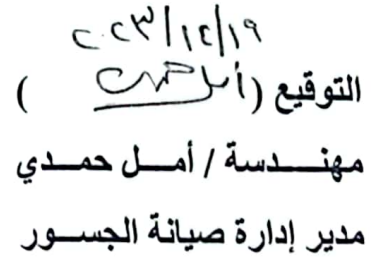 ٢٠٢٣/١٢/١٩
التوقيع (أمل حمدي)
مهنـــدسة / أمــل حمــدي
مدير إدارة صيانة الجســور